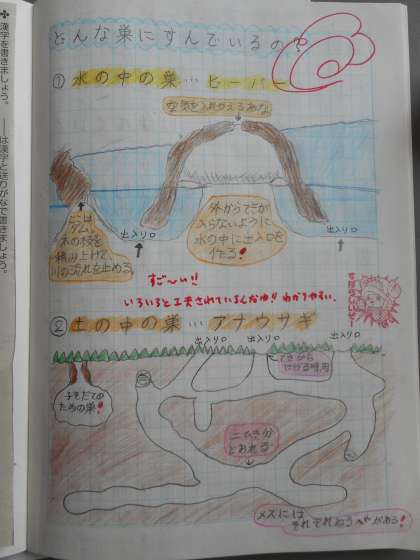 漢字を書きましょう。
――は漢字と送りがなで書きましょう。
どんな巣にすんでいるの?
① 水の中の巣…ビーバー
空気を入れかえるあな
ここは
ダム。
木の枝を
積み上げて、
川の流れを止める。
出入り口
外からてきが
入らないように
水の中に出入口を
作る!
出入り口
すご〜い!!
いろいろと工夫されているんだね!! わかりやすい。
② 土の中の巣…アナウサギ
出入り口
出入り口
出入り口
てきから
にげる時用
子そだての
ための巣!
二ひき分
とおれる
メスには
それぞれねるへやがある!